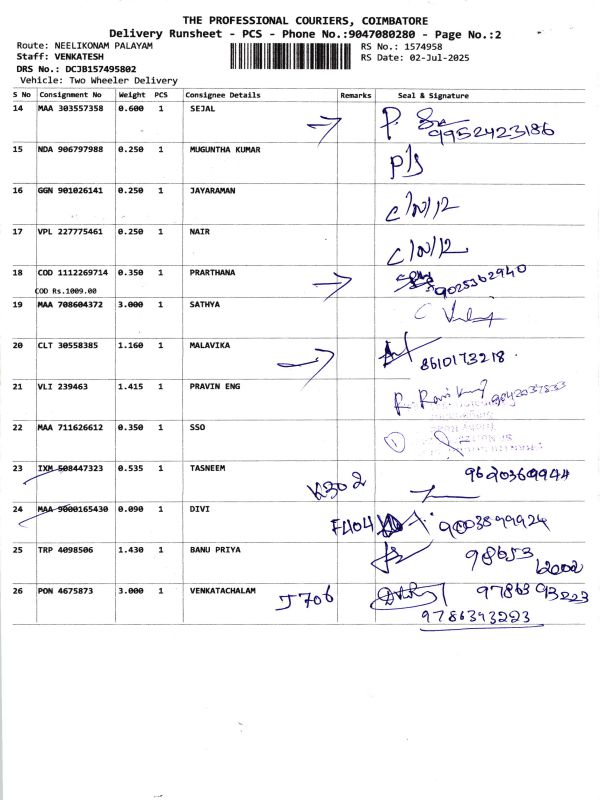 THE PROFESSIONAL COURIERS, COIMBATORE
Delivery Runsheet - PCS - Phone No.:9047080280 - Page No.:2
Route: NEELIKONAM PALAYAM RS No.: 1574958
Staff: VENKATESH RS Date: 02-Jul-2025
DRS No.: DCJB157495802
Vehicle: Two Wheeler Delivery
S No Consignment No Weight PCS Consignee Details Remarks Seal & Signature
14 MAA 303557358 0.600 1 SEJAL
9952423186
15 NDA 906797988 0.250 1 MUGUNTHA KUMAR
P/S
16 GGN 901026141 0.250 1 JAYARAMAN
C/N/12
17 VPL 227775461 0.250 1 NAIR
C/N/12
18 COD 1112269714 0.350 1 PRARTHANA
9025362940
COD Rs.1009.00
19 MAA 708604372 3.000 1 SATHYA
20 CLT 30558385 1.160 1 MALAVIKA
8610173218
21 VLI 239463 1.415 1 PRAVIN ENG
22 MAA 711626612 0.350 1 SSO
1
23 IXM 508447323 0.535 1 TASNEEM
K302 9620369944
24 MAA 9000165430 0.090 1 DIVI
F404 9003899924
25 TRP 4098506 1.430 1 BANU PRIYA
98653
12002
26 PON 4675873 3.000 1 VENKATACHALAM
J706 9786393223
9786393223